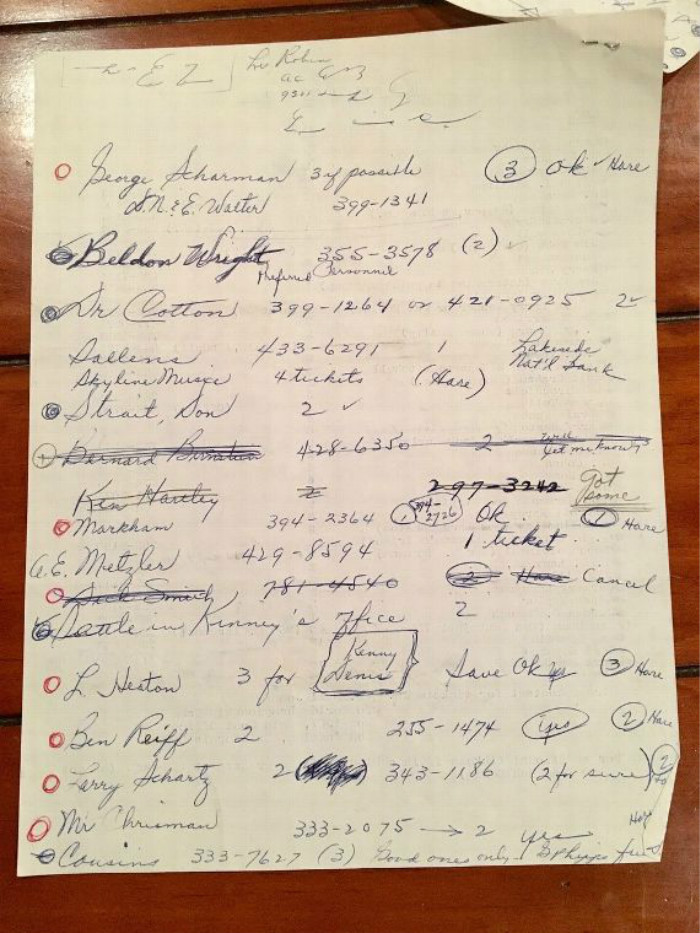 Robin
George Scharman 3 if possible 3 ok Hare
S.N.&E. Walter 399-1341
Beldon Wright 355-3578 (2)
Preferred Personnel
Dr Cotton 399-1264 or 421-0925 2
Sallens 433-6291 1 Lakeside
Skyline Music 4 tickets (Hare) Nat'l Bank
Strait, Don 2
Barnard Bernstein 428-6350 2 let me know
Ken Hartley 2 297-3242 Got some
Markham 394-2364 1 394-2726 OK 1 Hare
A.E. Metzler 429-8594 1 ticket
Jack Smith 781-4540 2 Hare Cancel
in Kinney's office 2
L. Heaton 3 for Kenny Denis Save Ok 3 Hare
Ben Reiff 2 255-1474 yes 2 Hare
Larry Schartz 2 343-1186 (2 for sure) 2
Mr Chrisman 333-2075 → 2 yes
Cousins 333-7627 (3) Good ones only